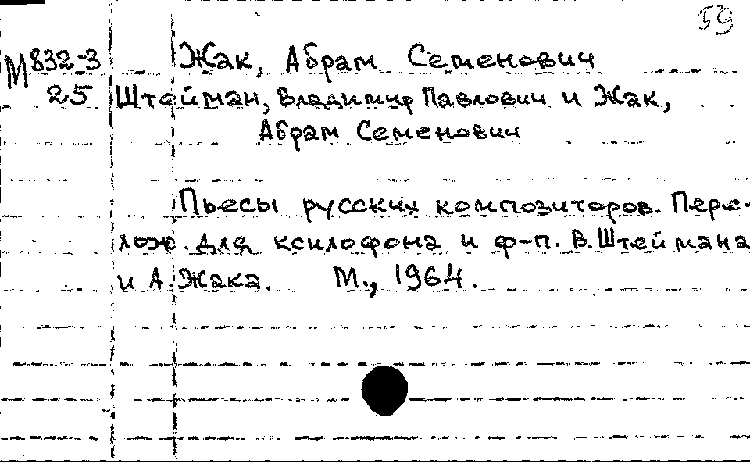 59
М 832-3 Жак, Абрам Семенович
25 Штейман, Владимир Павлович и Жак,
Абрам Семенович
Пьесы русских композиторов. Пере-
лож. для ксилофона и ф-п. В. Штеймана
и А. Жака. М., 1964.